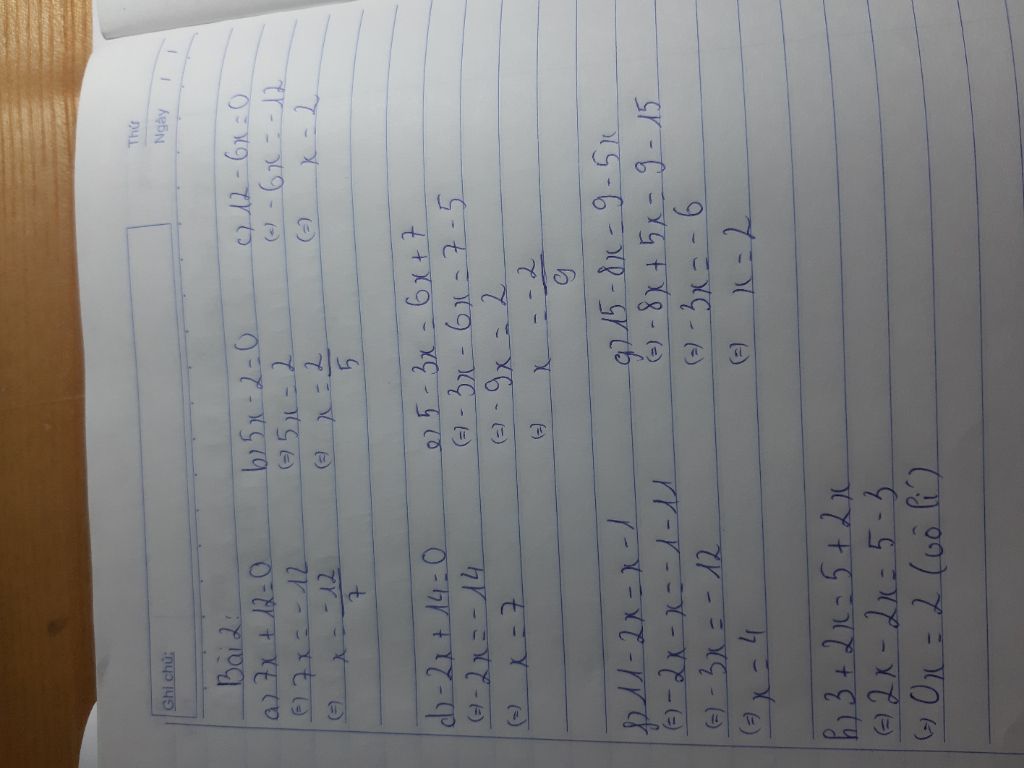 Ghi chú:
Thứ
Ngày / /
Bài 2:
a) 7x + 12 = 0
(=) 7x = -12
(=) x = -12/7
b) 5x - 2 = 0
(=) 5x = 2
(=) x = 2/5
c) 12 - 6x = 0
(=) - 6x = -12
(=) x = 2
d) -2x + 14 = 0
(=) -2x = -14
(=) x = 7
e) 5 - 3x = 6x + 7
(=) - 3x - 6x = 7 - 5
(=) - 9x = 2
(=) x = -2/9
f) 11 - 2x = x - 1
(=) -2x - x = -1 - 11
(=) - 3x = - 12
(=) x = 4
g) 15 - 8x = 9 - 5x
(=) - 8x + 5x = 9 - 15
(=) - 3x = - 6
(=) x = 2
h) 3 + 2x = 5 + 2x
(=) 2x - 2x = 5 - 3
(=) 0x = 2 (vô lí)